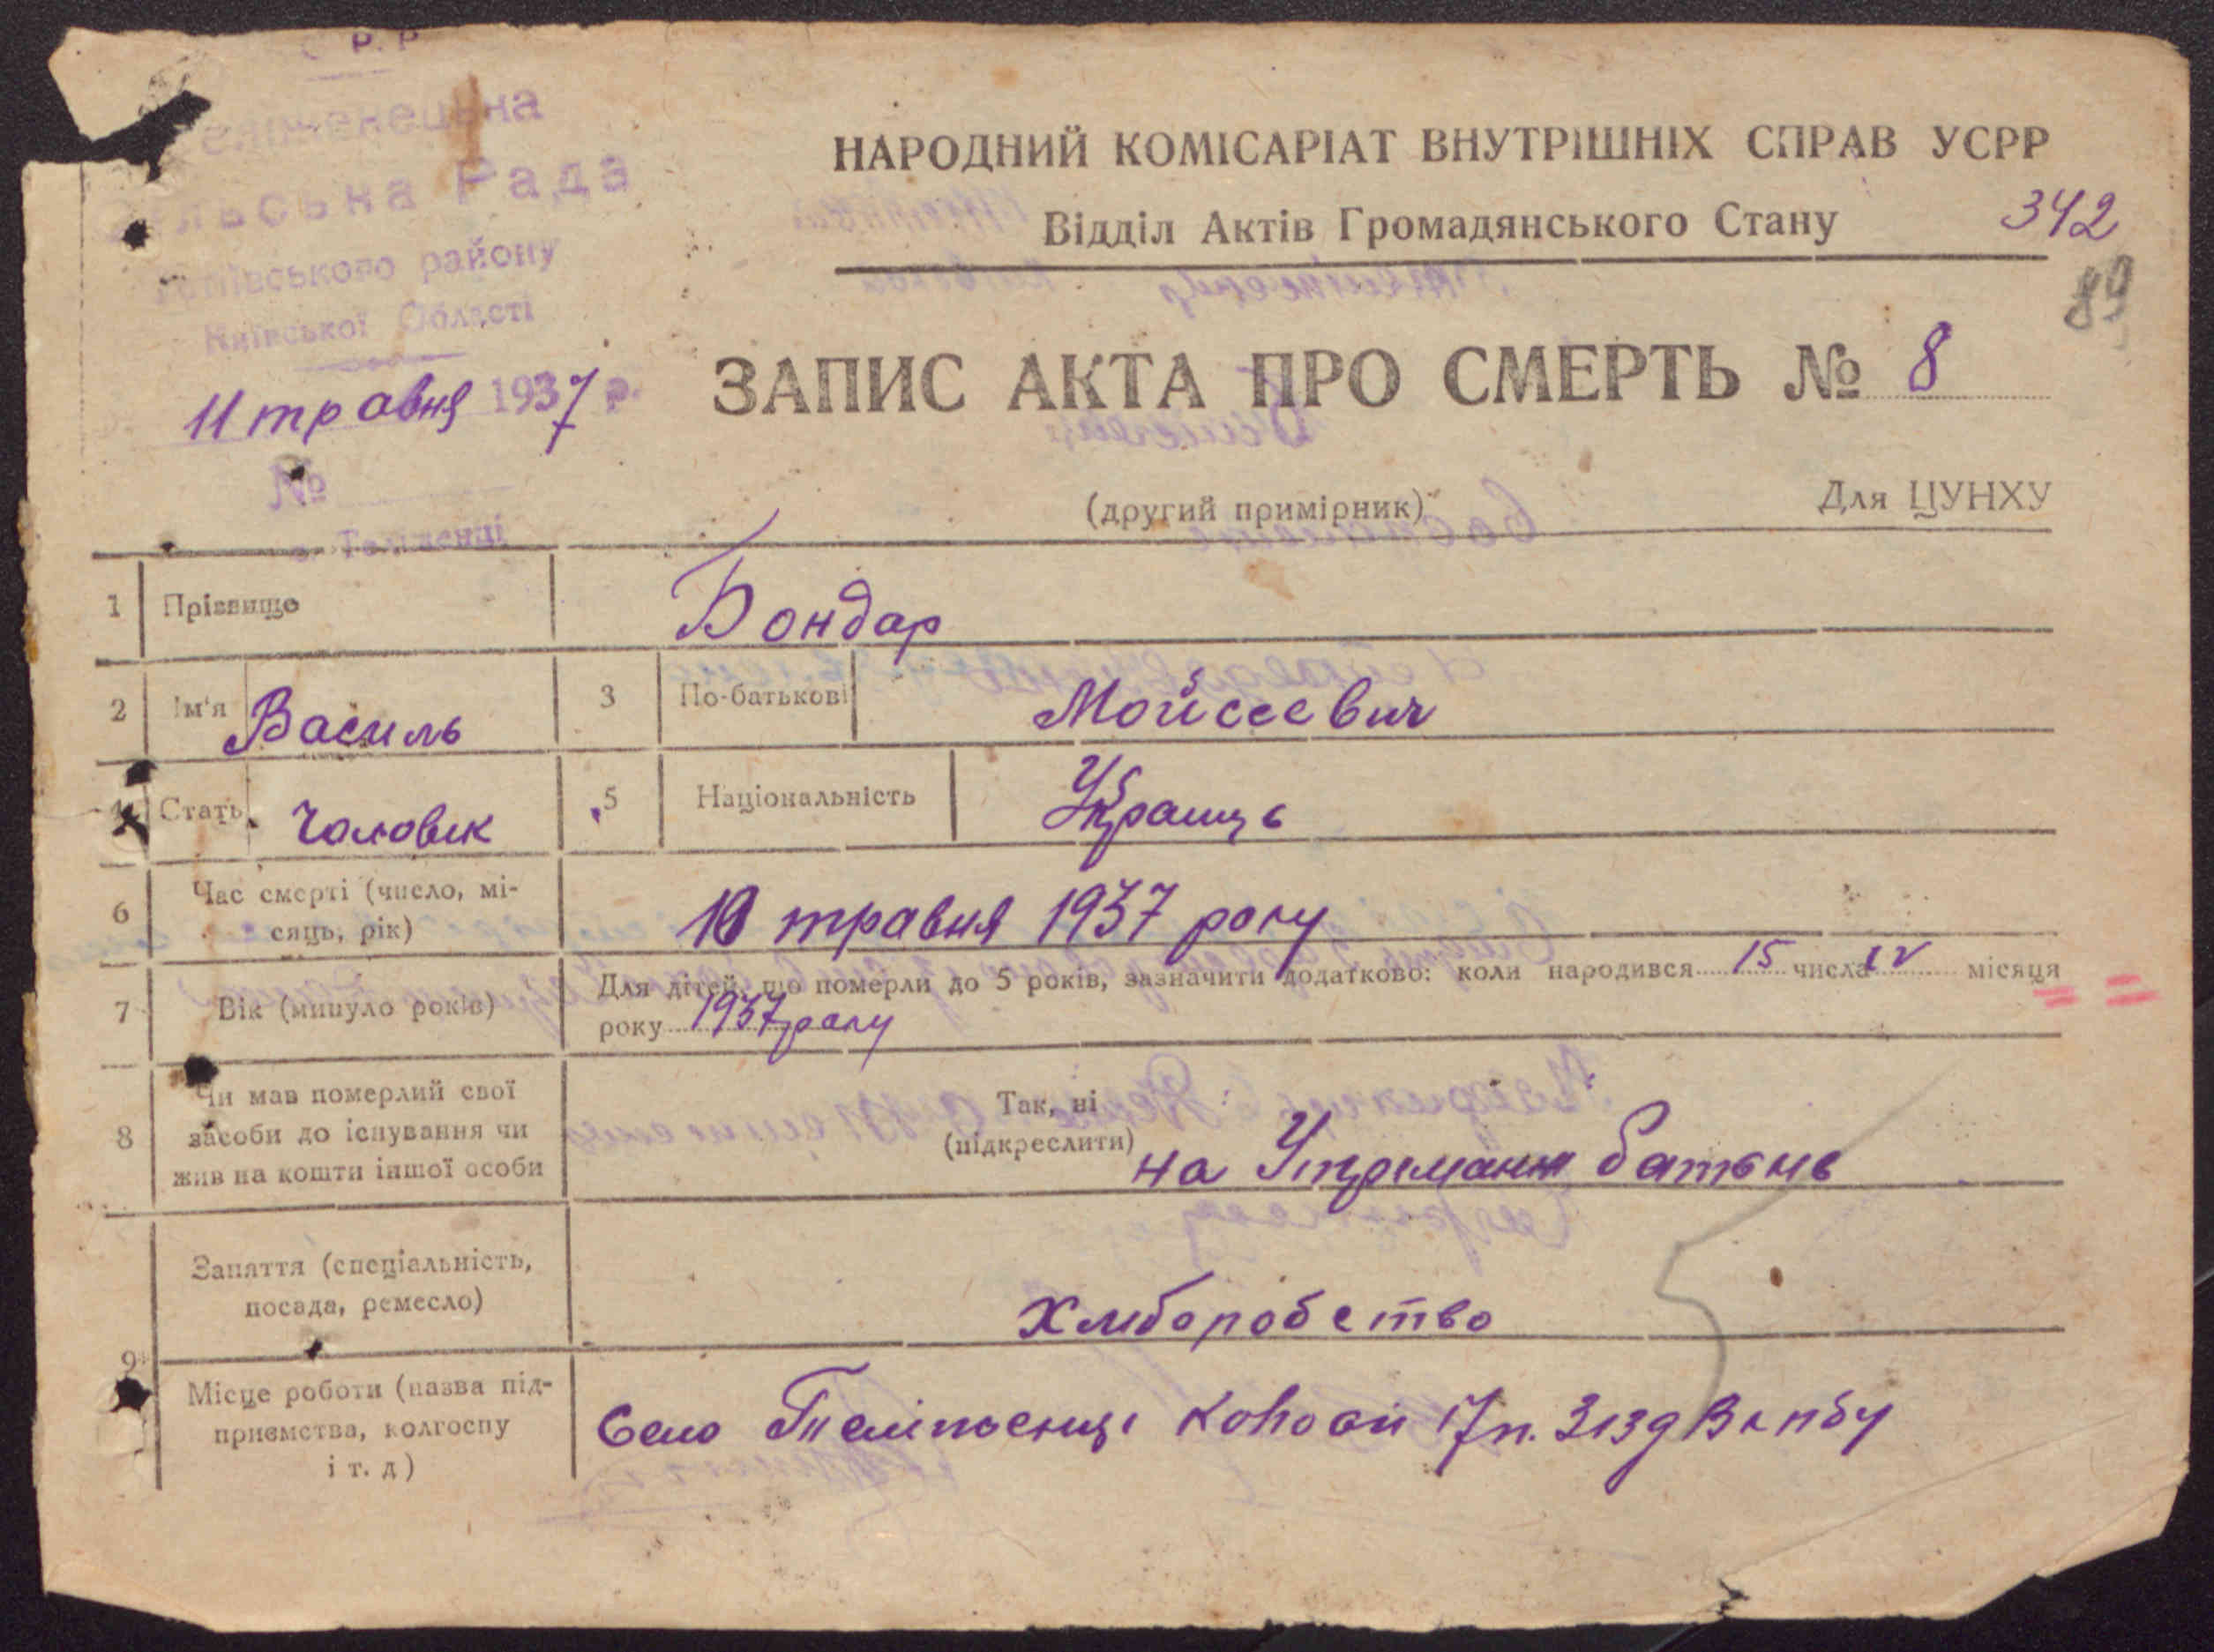 Р. Р
Рада
району
Київської Області
11 травня 1937 р.
№
НАРОДНИЙ КОМІСАРІАТ ВНУТРІШНІХ СПРАВ УСРР
Відділ Актів Громадянського Стану
342
89
ЗАПИС АКТА ПРО СМЕРТЬ № 8
(другий примірник)
Для ЦУНХУ
1 Прізвище Бондар
2 Ім'я Василь 3 По-батькові Мойсеевич
4 Стать Чоловік 5 Національність Украинць
6 Час смерті (число, мі-
сяць, рік) 10 травня 1937 року
7 Вік (минуло років) Для дітей, що померли до 5 років, зазначити додатково: коли народився 15 числа IV місяця
року 1937 року
8 Чи мав померлий свої
засоби до існування чи
жив на кошти іншої особи
Так, ні
(підкреслити) на Утриманні батьків
9 Заняття (спеціальність,
посада, ремесло) Хліборобство
Місце роботи (назва під-
приємства, колгоспу
і т. д) Село 17 п.